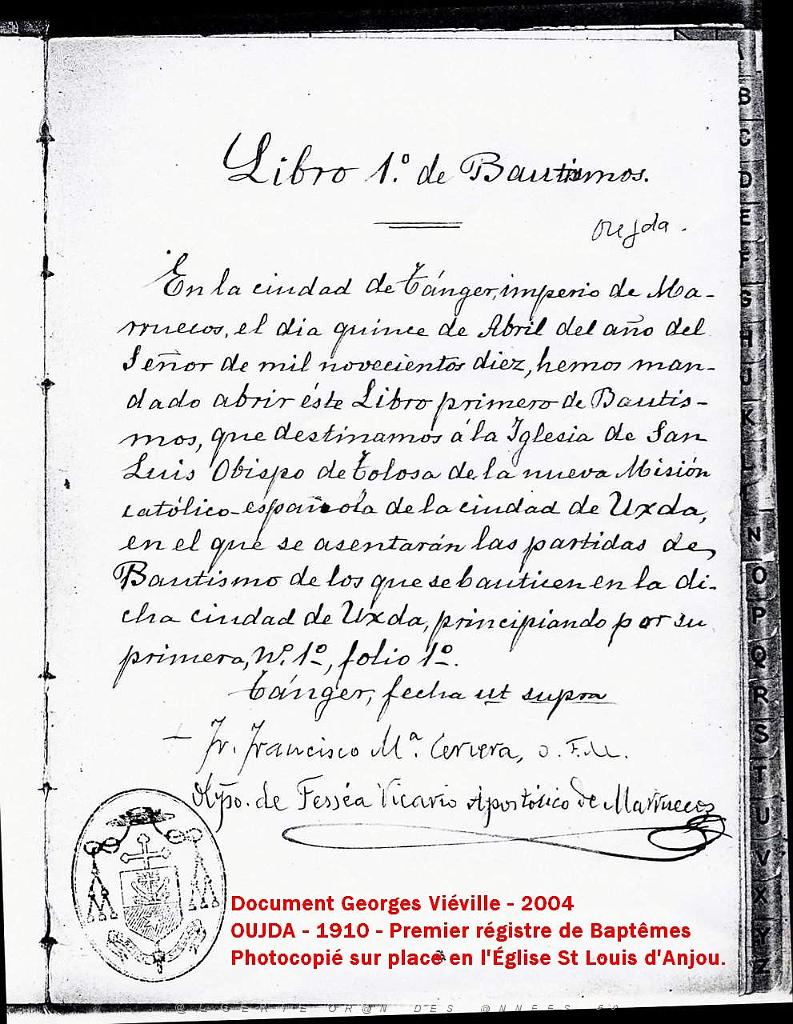 Libro 1.º de Bautismos.
Oujda.
En la ciudad de Tánger, imperio de Ma-
rruecos, el dia quince de Abril del año del
Señor de mil novecientos diez, hemos man-
dado abrir éste Libro primero de Bautis-
mos, que destinamos á la Iglesia de San
Luis Obispo de Tolosa de la nueva Misión
católico-española de la ciudad de Uxda,
en el que se asentarán las partidas de
Bautismo de los que se bauticen en la di-
cha ciudad de Uxda, principiando por su
primera, Nº. 1º, folio 1º.
Tánger, fecha ut supra
Fr. Francisco Mª Cervera, O.F.M.
de Fesséa Vicario Apostólico de Marruecos
Document Georges Viéville - 2004
OUJDA - 1910 - Premier régistre de Baptêmes
Photocopié sur place en l'Église St Louis d'Anjou.
B
C
D
E
F
G
H
J
K
L
N
O
P
Q
R
S
T
U
V
X
Y
Z